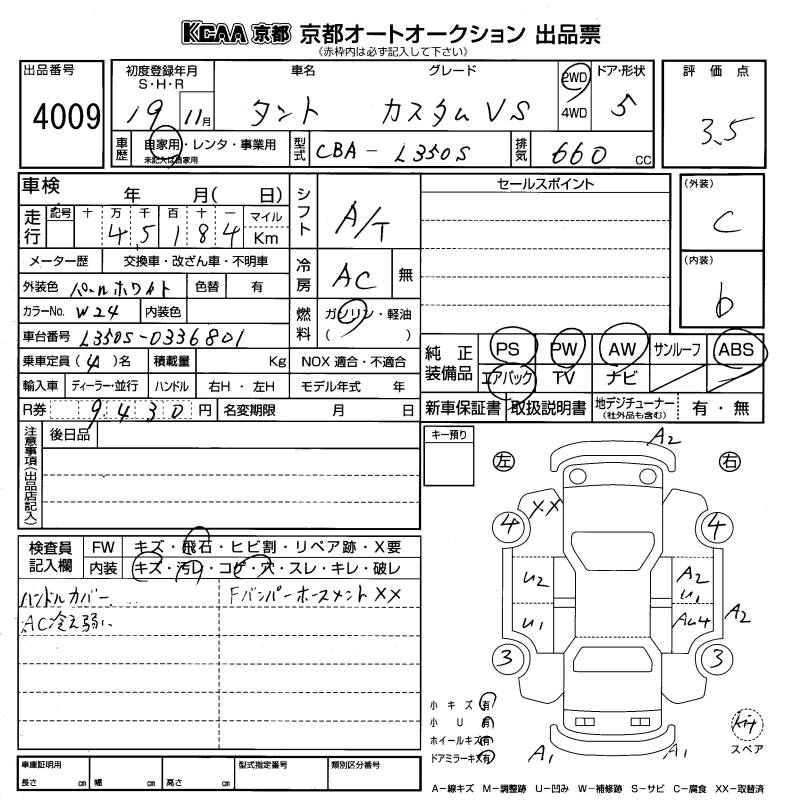 KCAA 京都 京都オートオークション 出品票
《赤枠内は必ず記入して下さい》
出品番号
4009
初度登録年月
S・H・R
19 11月
車名
タント
グレード
カスタムVS
2WD
4WD
ドア・形状
5
評価点
3.5
車歴
自家用・レンタ・事業用
未記入は自家用
型式
CBA-L350S
排気
660 CC
車検 年 月( 日)
走行
記号 十 万 千 百 十 一 マイル
4 5 1 8 4 Km
メーター歴 交換車・改ざん車・不明車
外装色 パールホワイト 色替 有
カラーNo. W24 内装色
車台番号 L350S-0336801
乗車定員(4)名 積載量 Kg NOX 適合・不適合
輸入車 ディーラー・並行 ハンドル 右H・左H モデル年式 年
R券 9430円 名変期限 月 日
シフト A/T
冷房 AC 無
燃料 ガソリン・軽油
( )
セールスポイント
(外装)
C
(内装)
b
純正装備品
PS PW AW サンルーフ ABS
エアバック TV ナビ
新車保証書 取扱説明書 地デジチューナー(社外品も含む) 有・無
注意事項(出品店記入)
後日品
キー預り
検査員記入欄
FW キズ・飛石・ヒビ割・リペア跡・X要
内装 キズ・汚レ・コゲ・穴・スレ・キレ・破レ
ハンドルカバー
AC冷え弱い
Fバンパーホースメント XX
左 右
A2
XX
4 4
U2 A2
U1
U1 AU4 A2
3 3
A1 A1
小キズ 有
小U 有
ホイールキズ 有
ドアミラーキズ 有
kit
スペア
車庫証明用
長さ cm 幅 cm 高さ cm
型式指定番号
類別区分番号
A−線キズ M−調整跡 U−凹み W−補修跡 S−サビ C−腐食 XX−取替済